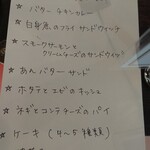 ☆ バターチキンカレー
☆ 白身魚のフライ サンドウィッチ
☆ スモークサーモンと
クリームチーズのサンドウィッチ
☆ あんバターサンド
☆ ホタテとエビのキッシュ
☆ ネギとコンテチーズのパイ
☆ ケーキ (4〜5種類)